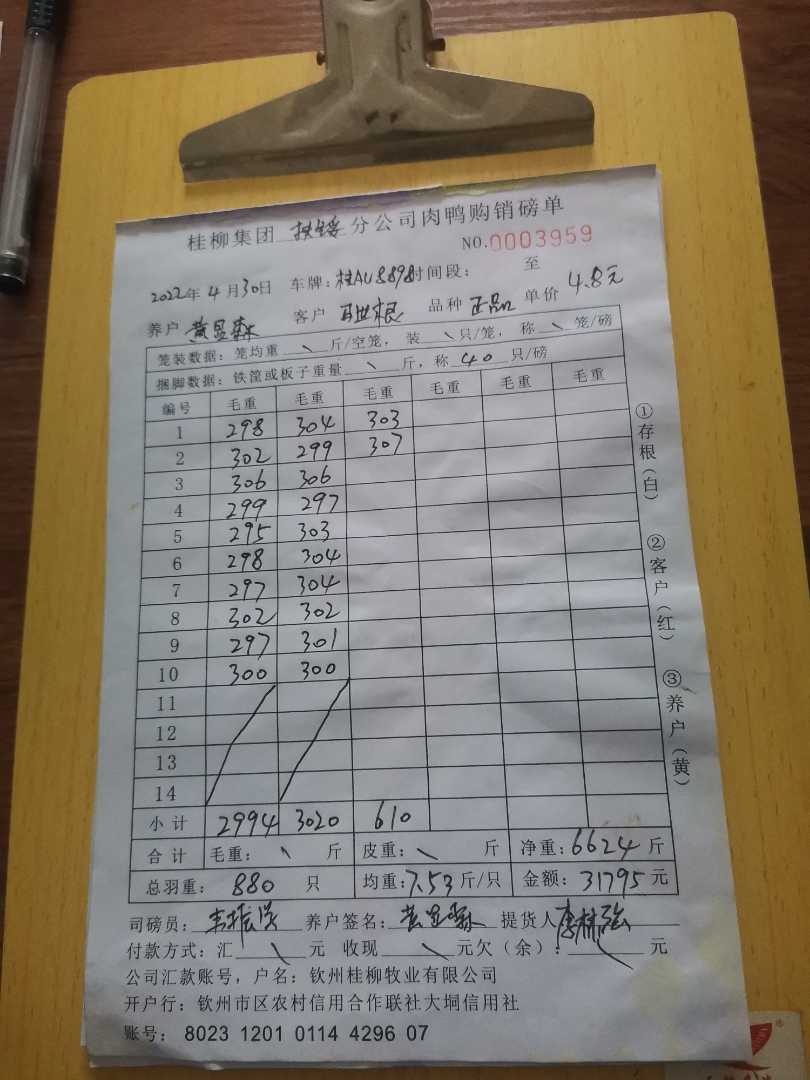 桂柳集团 扶绥 分公司肉鸭购销磅单
NO.0003959
2022年4月30日 车牌:桂AU8898 时间段: 至
养户 黄显森 客户 品种 正品 单价 4.8元
笼装数据:笼均重 \ 斤/空笼,装 \ 只/笼,称 \ 笼/磅
捆脚数据:铁筐或板子重量 \ 斤,称 40 只/磅
编号 毛重 毛重 毛重 毛重 毛重 毛重
1 298 304 303
2 302 299 307
3 306 306
4 299 297
5 295 303
6 298 304
7 297 304
8 302 302
9 297 301
10 300 300
11
12
13
14
小计 2994 3020 610
合计 毛重: \ 斤 皮重: \ 斤 净重:6624斤
总羽重: 880 只 均重:7.53斤/只 金额:31795元
司磅员: 养户签名:黄显森 提货人
付款方式:汇 \ 元 收现 \ 元欠(余): 元
公司汇款账号,户名:钦州桂柳牧业有限公司
开户行:钦州市区农村信用合作联社大垌信用社
账号: 8023 1201 0114 4296 07
①存根(白) ②客户(红) ③养户(黄)